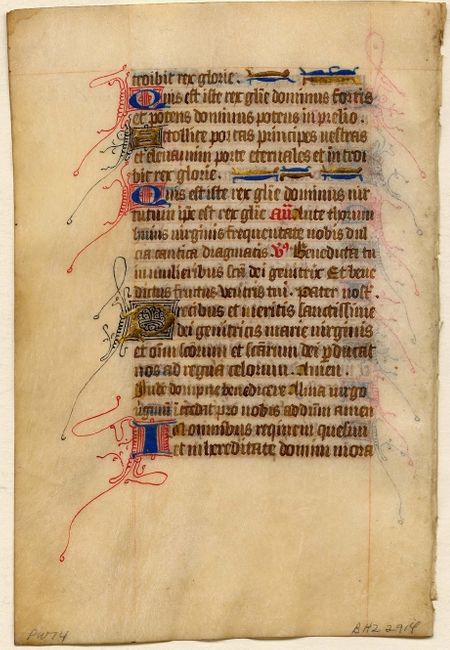 troibit rex glorie.
Quis est iste rex glīe dominus fortis
et potens dominus potens in prelio.
Attollite portas principes vestras
et elevamini porte eternales et introi
bit rex glorie.
Quis est iste rex glīe dominus vir
tutum ipē est rex glīe añ. Ante thorum
huius virginis frequentate nobis dul
cia cantica dragmatis. V̄s. Benedicta tu
in mulieribus scā dei genitrix Et bene
dictus fructus ventris tui. Pater nosr̄.
Precibus et meritis sanctissime
dei genitricis marie virginis
et oīm scorum et scārum dei pducat
nos ad regna celorum. Amen.
Iube dompne benedicere Alma virgo
virginū īcedat pro nobis ad dūm amen
In omnibus requiem quesivi
et in hereditate domini mora
PW74
BHZ 2914